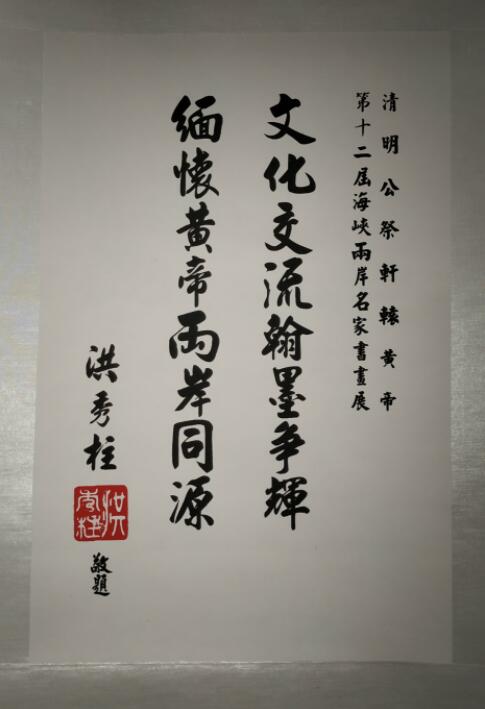 清明公祭軒轅黃帝
第十二屆海峽兩岸名家書畫展
文化交流翰墨爭輝
緬懷黃帝兩岸同源
洪秀柱
洪秀柱
敬題